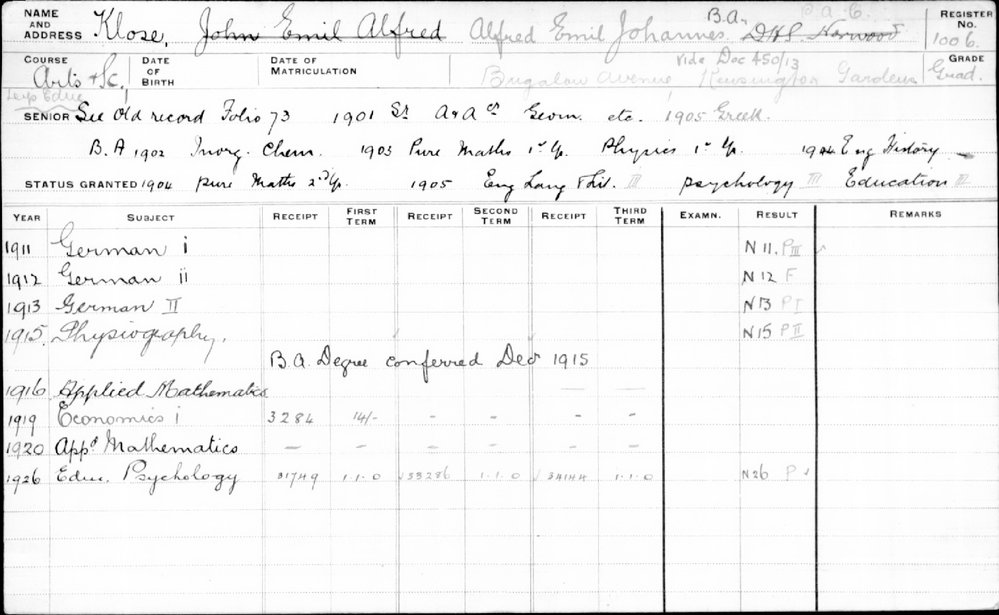 NAME AND ADDRESS Klose, John Emil Alfred Alfred Emil Johannes. B.A. P.A.C. D.H.S. Norwood REGISTER No. 1006.
COURSE Arts & Sc. DATE OF BIRTH DATE OF MATRICULATION Bugalow Avenue Vide Doc 450/13 Kensington Gardens GRADE Grad.
Educ
SENIOR See Old record Folio 73 1901 Geom. etc. 1905 Greek.
B.A 1902 Inorg. Chem. 1903 Pure Maths 1st Yr. Physics 1st Yr. 1904 Eng History
STATUS GRANTED 1904 Pure Maths 2nd Yr. 1905 Eng Lang & Lit. III Psychology III Education II
YEAR SUBJECT RECEIPT FIRST TERM RECEIPT SECOND TERM RECEIPT THIRD TERM EXAMN. RESULT REMARKS
1911 German i N 11. P III
1912 German ii N 12 F
1913 German II N 13 P I
1915. Physiography. N 15 P II
B.A. Degree conferred Dec 1915
1916 Applied Mathematics — —
1919 Economics i 3284 14/- - - - -
1920 Appd Mathematics — — — — — —
1926 Educ. Psychology 31749 1.1.0 33286 1.1.0 34144 1.1.0 N26 P